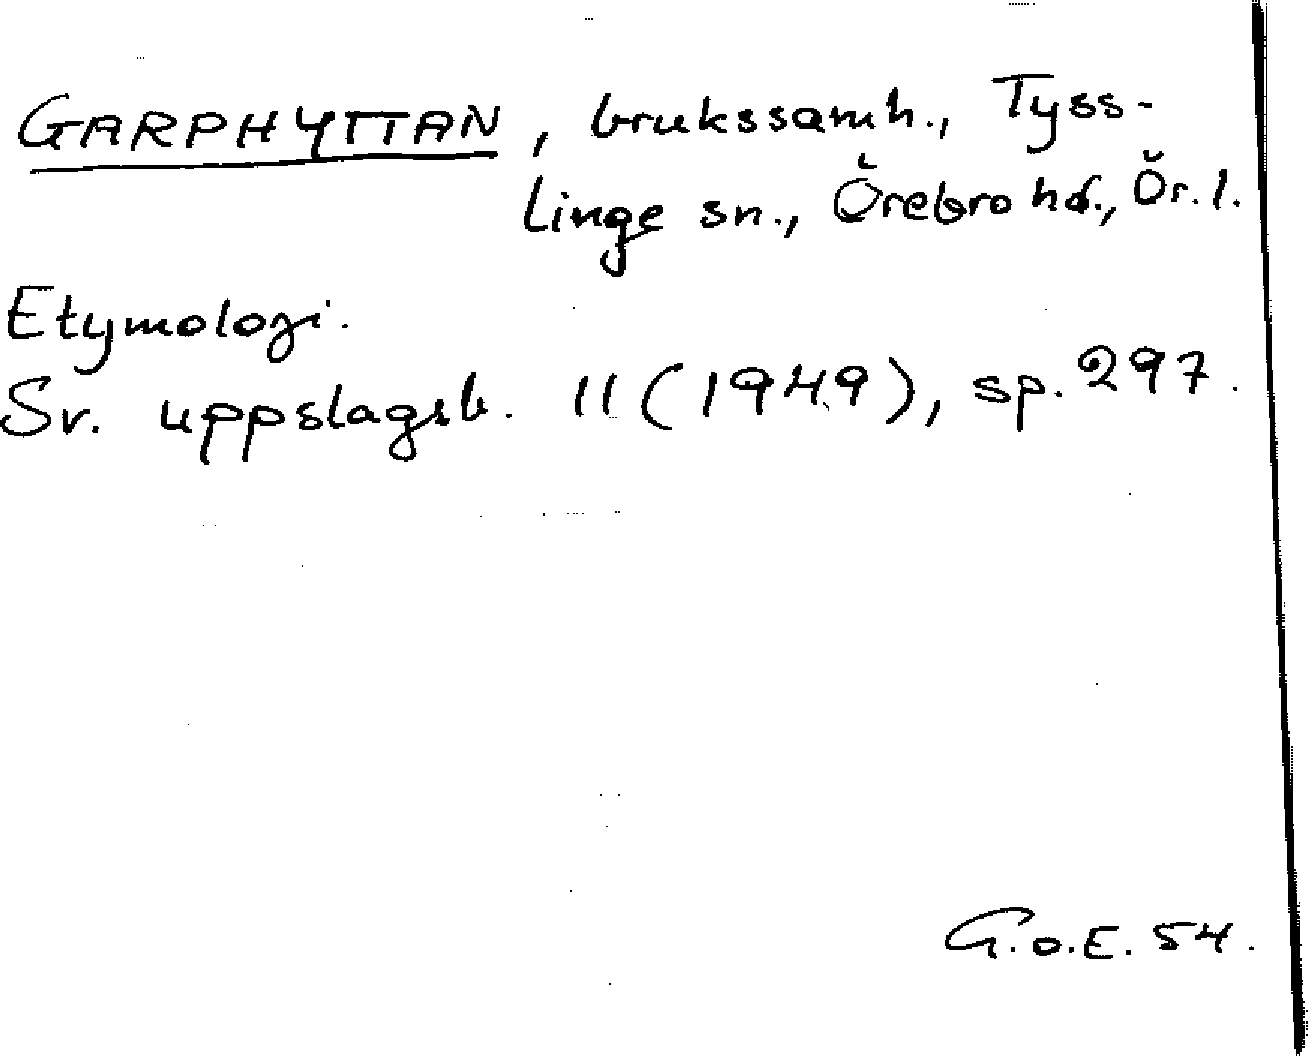 GARPHYTTAN, brukssamh., Tyss-
linge sn., Örebro hd., Ör. l.
Etymologi.
Sv. uppslagsb. 11 (1949), sp. 297.
G.o.E. 54.